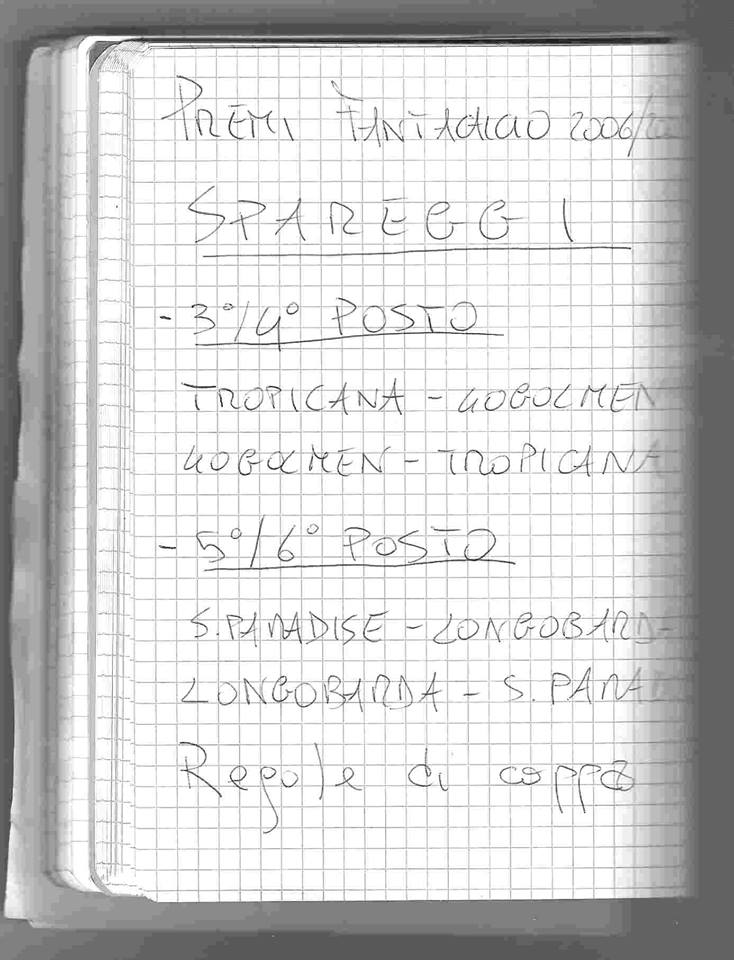 PREMI FANTACALCIO 2006/20
SPAREGGI
- 3°/4° POSTO
TROPICANA - GOGOLMEN
GOGOLMEN - TROPICANA
- 5°/6° POSTO
S. PARADISE - LONGOBARD
LONGOBARDA - S. PARA
Regole di coppa